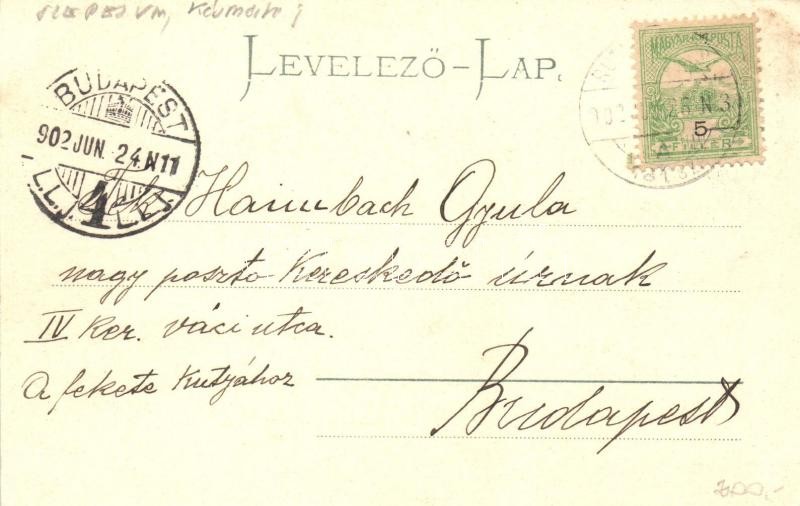 LEVELEZŐ-LAP.
MAGYAR KIR. POSTA
5
FILLÉR
BUDAPEST
902 JUN. 24 N11
Tek. Haimbach Gyula
nagy poszto Kereskedő úrnak
IV Ker. váci utca.
A fekete Kutyához
Budapest
700.-